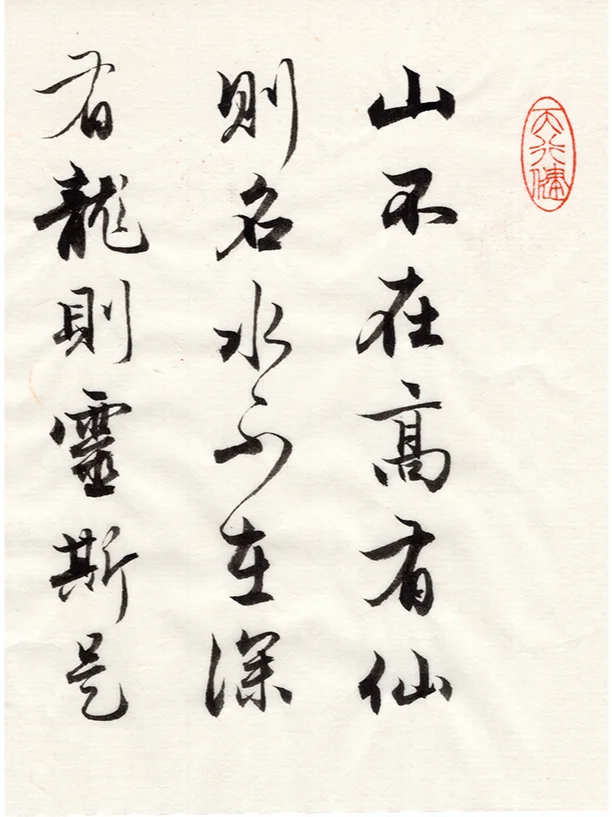 天行健
山不在高有仙
則名水不在深
有龍則靈斯是